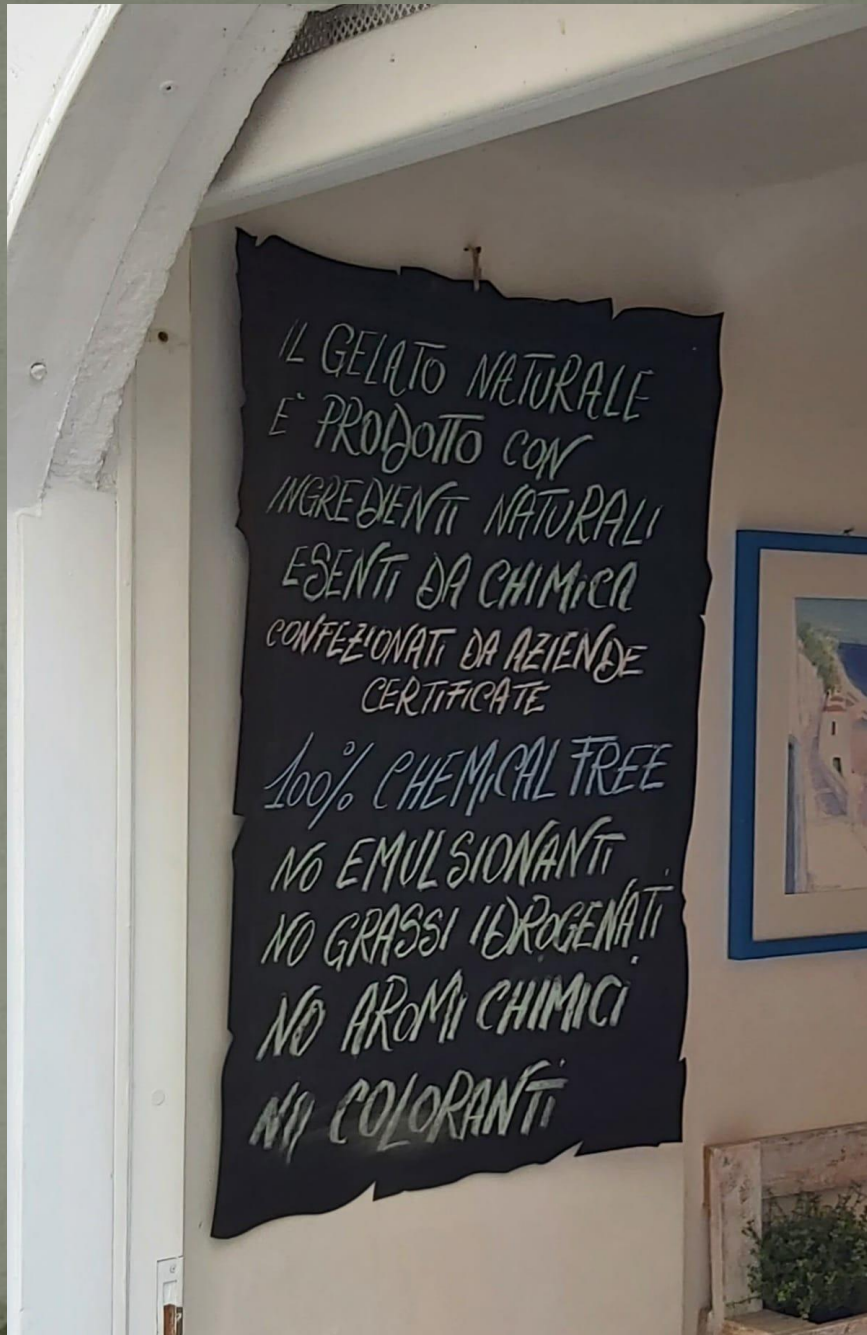 IL GELATO NATURALE
E' PRODOTTO CON
INGREDIENTI NATURALI
ESENTI DA CHIMICA
CONFEZIONATI DA AZIENDE
CERTIFICATE
100% CHEMICAL FREE
NO EMULSIONANTI
NO GRASSI IDROGENATI
NO AROMI CHIMICI
NO COLORANTI